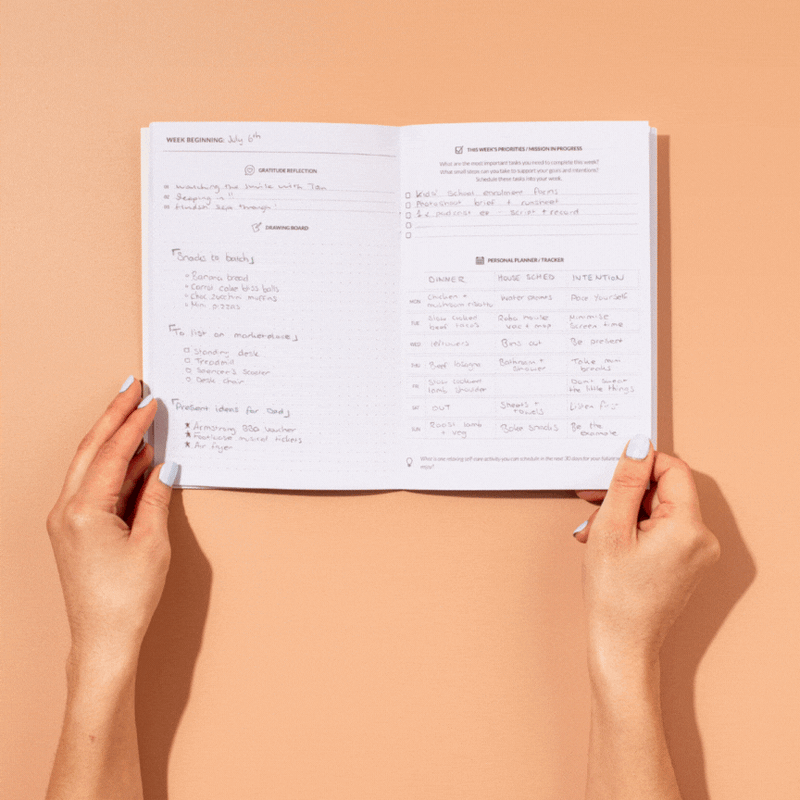 WEEK BEGINNING: July 6th
GRATITUDE REFLECTION
watching the movie with Ten
Sleeping in!!
through!
DRAWING BOARD
Snacks to batch
Banana bread
Carrot cake bliss balls
Choc zucchini muffins
Mini pizzas
To list on marketplace
Standing desk
Treadmill
Spencer's Scooter
Desk chair
Present ideas for Dad
Armstrong BBQ voucher
Footloose musical tickets
Air fryer
THIS WEEK'S PRIORITIES / MISSION IN PROGRESS
What are the most important tasks you need to complete this week?
What small steps can you take to support your goals and intentions?
Schedule these tasks into your week.
Kids' School enrolment forms
Photoshoot brief + runsheet
podcast ep - script + record
PERSONAL PLANNER / TRACKER
DINNER HOUSE SCHED INTENTION
MON Chicken + mushroom risotto Water plants Pace Yourself
TUE Slow cooker beef tacos Robo movile vac + mop Minimise Screen time
WED leftovers Bins out Be present
THU Beef lasagne Bathroom + shower Take mini breaks
FRI Slow cooked lamb shoulder Don't sweat the little things
SAT OUT Sheets + towels Listen first
SUN Roast lamb + veg Bake snacks Be the example
What is one relaxing self-care activity you can schedule in the next 30 days for your future self to enjoy?